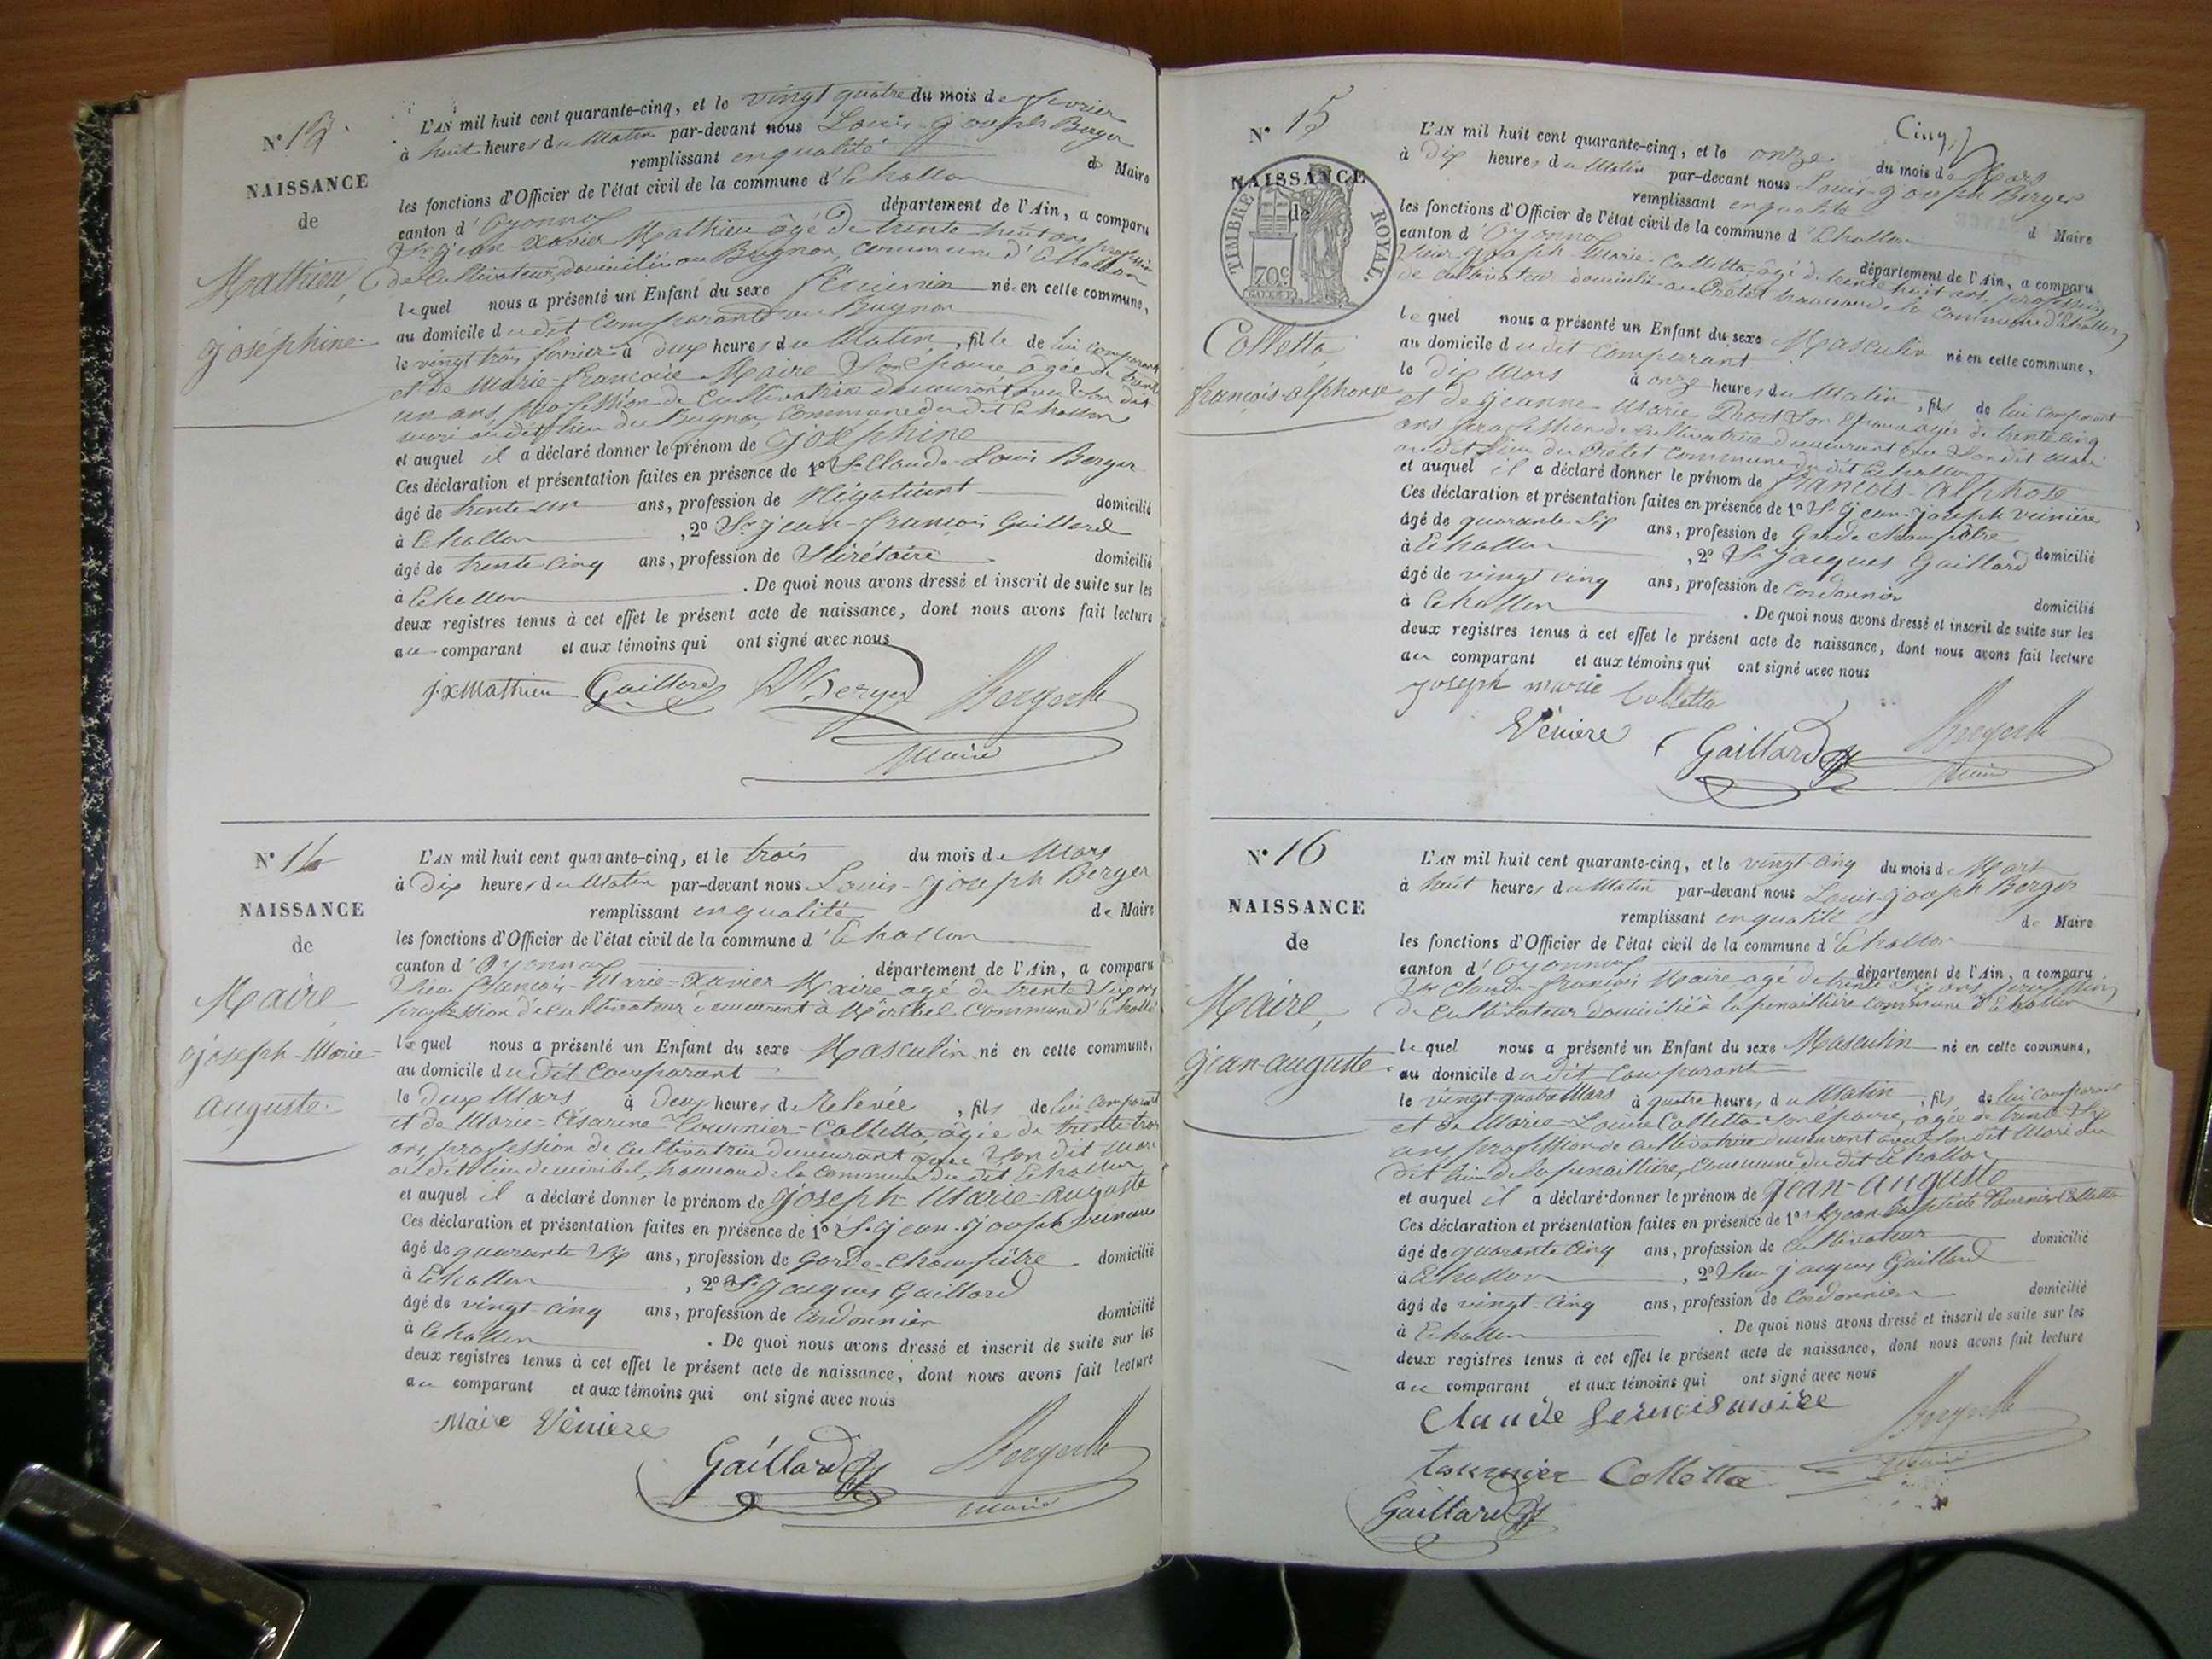 N° 13.
NAISSANCE
de
Mathieu,
joséphine.
L'AN mil huit cent quarante-cinq, et le vingt quatre du mois de fevrier
à huit heures du Matin par-devant nous Louis-joseph Berger
remplissant en qualité de Maire
les fonctions d'Officier de l'état civil de la commune d'Echallon
canton d'Oyonnax département de l'Ain, a comparu
Sr jean-Xavier Mathieu âgé de trente huit ans, profession
de Cultivateur, domicilié au Bugnon, commune d'Echallon
lequel nous a présenté un Enfant du sexe féminin né en cette commune,
au domicile dudit Comparant au Bugnon
le vingt trois fevrier à deux heures du Matin, fille de lui comparant
et de Marie-françoise Maire Son épouse âgée de trente
un ans, profession de Cultivatrice demeurant avec Son dit
mari audit lieu du Bugnon, Commune dudit Echallon
et auquel il a déclaré donner le prénom de joséphine
Ces déclaration et présentation faites en présence de 1° Sr Claude-Louis Berger
âgé de trente un ans, profession de Négotiant domicilié
à Echallon, 2° Sr jean-françois Gaillard
âgé de trente cinq ans, profession de Sécrétaire domicilié
à Echallon. De quoi nous avons dressé et inscrit de suite sur les
deux registres tenus à cet effet le présent acte de naissance, dont nous avons fait lecture
au comparant et aux témoins qui ont signé avec nous
j.x Mathieu Gaillard Berger
Maire
N° 14
NAISSANCE
de
Maire,
joseph-Marie-
auguste.
L'AN mil huit cent quarante-cinq, et le trois du mois de Mars
à dix heures du Matin par-devant nous Louis-joseph Berger
remplissant en qualité de Maire
les fonctions d'Officier de l'état civil de la commune d'Echallon
canton d'Oyonnax département de l'Ain, a comparu
Sieur François-Marie-Xavier Maire âgé de trente Six ans,
profession de cultivateur demeurant à Méribel Commune d'Echallon
lequel nous a présenté un Enfant du sexe Masculin né en cette commune,
au domicile dudit Comparant
le deux Mars à deux heures de Relevée, fils de lui comparant
et de Marie-Césarine Tournier-Colletta, âgée de trente trois
ans, profession de Cultivatrice demeurant avec Son dit Mari
audit lieu de miribel, hameau de la commune dudit Echallon
et auquel il a déclaré donner le prénom de joseph-Marie-auguste
Ces déclaration et présentation faites en présence de 1° Sr jean-joseph Veiniere
âgé de quarante Six ans, profession de Garde-Champêtre domicilié
à Echallon, 2° Sr jacques Gaillard
âgé de vingt-cinq ans, profession de Cordonnier domicilié
à Echallon. De quoi nous avons dressé et inscrit de suite sur les
deux registres tenus à cet effet le présent acte de naissance, dont nous avons fait lecture
au comparant et aux témoins qui ont signé avec nous
Maire Vèniere
Gaillard
Maire
Cinq
N° 15
NAISSANCE
de
TIMBRE ROYAL.
70 c
Colletta,
françois-alphonse
L'AN mil huit cent quarante-cinq, et le onze du mois de Mars
à dix heures du Matin par-devant nous Louis-joseph Berger
remplissant en qualité d Maire
les fonctions d'Officier de l'état civil de la commune d'Echallon
canton d'Oyonnax département de l'Ain, a comparu
Sieur joseph-Marie-Colletta, âgé de trente huit ans, profession
de cultivateur domicilié au Crétet hameau de la Commune d'Echallon
lequel nous a présenté un Enfant du sexe Masculin né en cette commune,
au domicile dudit Comparant
le dix Mars à onze heures du Matin, fils de lui Comparant
et de jeanne-Marie Son Epouse âgée de trente cinq
ans, profession de Cultivatrice demeurant avec Son dit Mari
audit lieu du Crétet Commune dudit Echallon
et auquel il a déclaré donner le prénom de françois-alphose
Ces déclaration et présentation faites en présence de 1° Sr jean-joseph veiniere
âgé de quarante Six ans, profession de Garde champêtre domicilié
à Echallon, 2° Sr jacques Gaillard
âgé de vingt cinq ans, profession de Cordonnier domicilié
à Echallon. De quoi nous avons dressé et inscrit de suite sur les
deux registres tenus à cet effet le présent acte de naissance, dont nous avons fait lecture
au comparant et aux témoins qui ont signé avec nous
joseph marie Colletta
Vèniere Gaillard
Maire
N° 16
NAISSANCE
de
Maire,
jean-auguste.
L'AN mil huit cent quarante-cinq, et le vingt-cinq du mois d Mars
à huit heures du Matin par-devant nous Louis-joseph Berger
remplissant en qualité de Maire
les fonctions d'Officier de l'état civil de la commune d'Echallon
canton d'Oyonnax département de l'Ain, a comparu
Sr Claude-françois Maire âgé de trente Six ans, profession
de Cultivateur domicilié à lapenaillière commune d'Echallon
lequel nous a présenté un Enfant du sexe Masculin né en cette commune,
au domicile dudit Comparant
le vingt-quatre Mars à quatre heures du Matin, fils de lui Comparant
et de Marie-Louise Colletta Son épouse, âgée de trente Six
ans, profession de cultivatrice demeurant avec Son dit Mari au
dit lieu de lapenaillière, Commune dudit Echallon
et auquel il a déclaré donner le prénom de jean-auguste
Ces déclaration et présentation faites en présence de 1° Sr jean-baptiste Tournier-Colletta
âgé de quarante cinq ans, profession de Cultivateur domicilié
à Echallon, 2° Sieur jacques Gaillard
âgé de vingt-cinq ans, profession de Cordonnier domicilié
à Echallon. De quoi nous avons dressé et inscrit de suite sur les
deux registres tenus à cet effet le présent acte de naissance, dont nous avons fait lecture
au comparant et aux témoins qui ont signé avec nous
Claude maire
tournier Colletta Maire
Gaillard